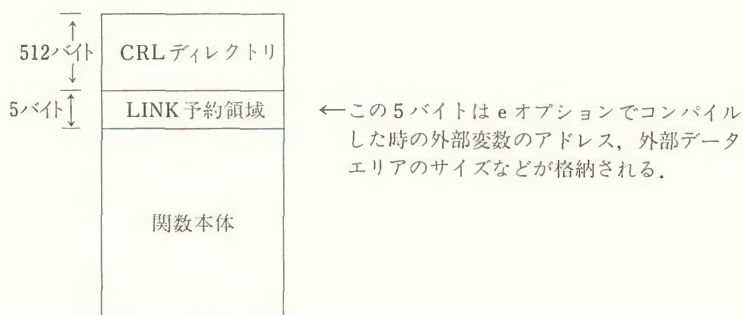 512バイト
CRLディレクトリ
5バイト
LINK予約領域
←この5バイトはeオプションでコンパイル
した時の外部変数のアドレス，外部データ
エリアのサイズなどが格納される．
関数本体